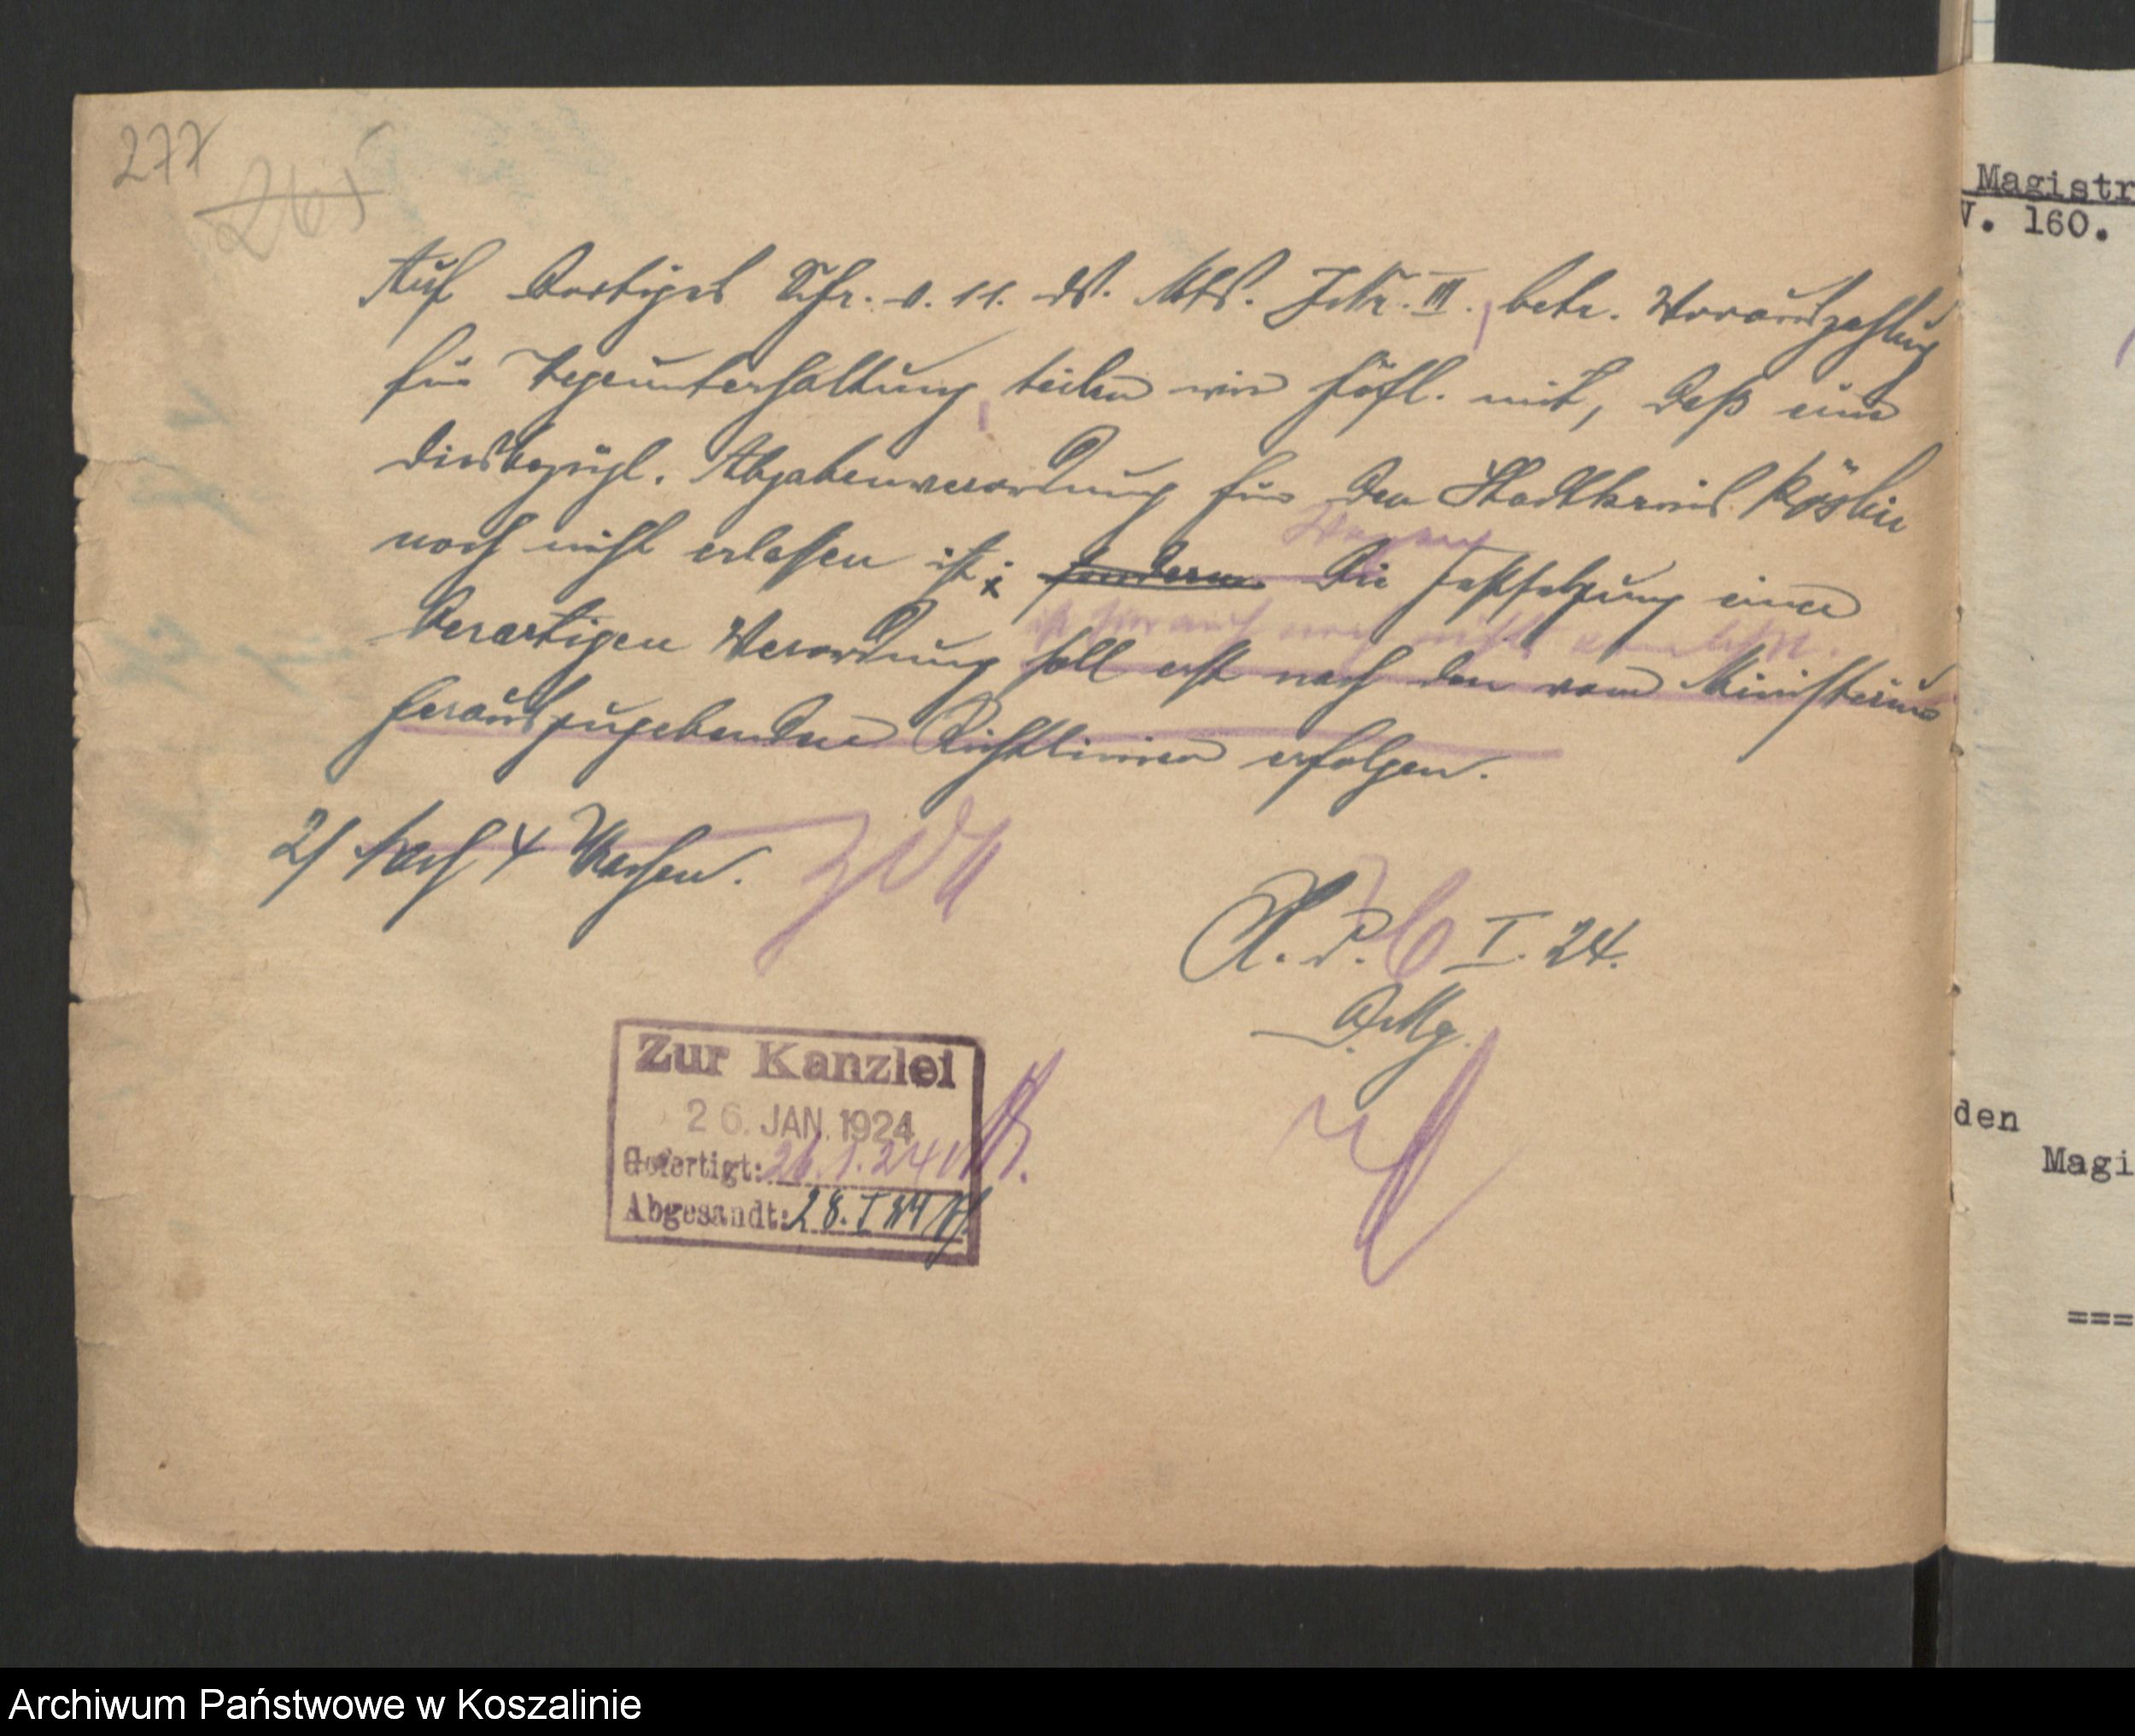 277
265
Auf dortiges Schr. v. 11. ds. Mts. J.Nr. III., betr. Vorauszahlung
für Wegeunterhaltung, teilen wir höfl. mit, daß eine
diesbezügl. Abgabenverordnung für den Stadtkreis Köslin
noch nicht erlassen ist; sondern die Festsetzung einer
ist hier auch noch nicht
derartigen Verordnung soll erst nach den vom Ministerium
herauszugebenden Richtlinien erfolgen.
2/ Nach 4 Wochen.
z d A
K. d. 26 I. 24.
D. Mg.
Zur Kanzlei
26. JAN. 1924
Gefertigt: 26.1.24
Abgesandt: 28. I 24
Magistr
V. 160.
den
Magi
===
Archiwum Państwowe w Koszalinie